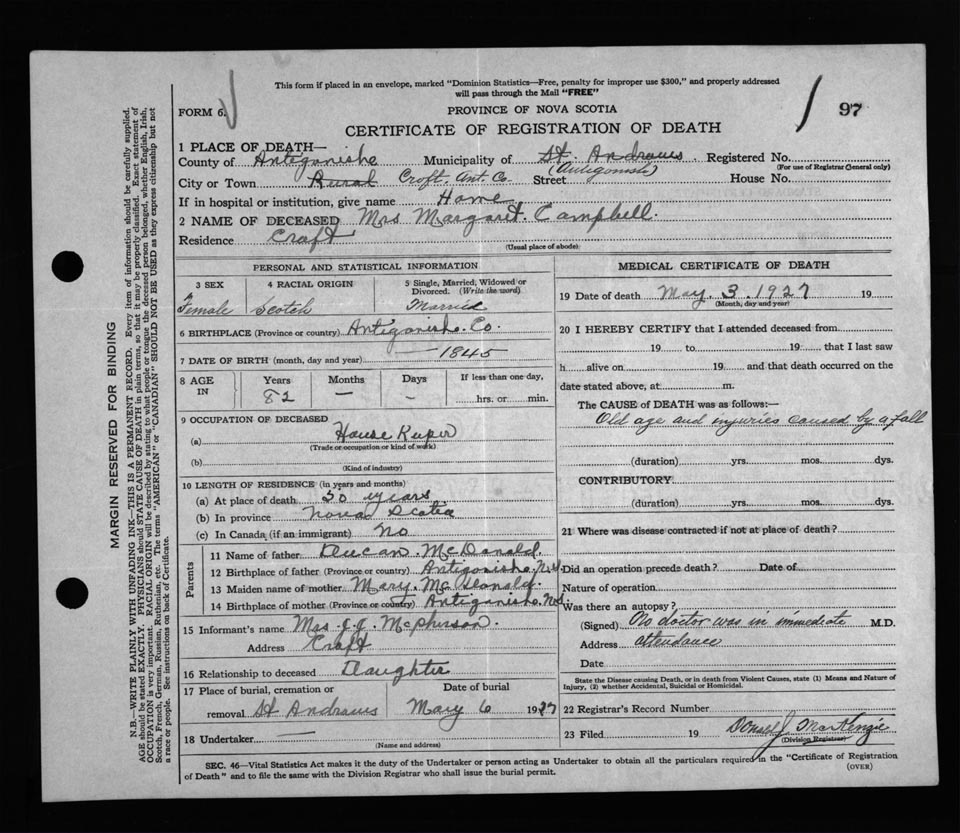 This form if placed in an envelope, marked "Dominion Statistics—Free, penalty for improper use $300," and properly addressed
will pass through the Mail "FREE"
FORM 6.
PROVINCE OF NOVA SCOTIA
97
CERTIFICATE OF REGISTRATION OF DEATH
1 PLACE OF DEATH—
County of Antigonishe Municipality of St. Andrews Registered No.
(Antigonish) (For use of Registrar General only)
City or Town Rural Croft, Ant. Co. Street House No.
If in hospital or institution, give name Home
2 NAME OF DECEASED Mrs Margaret Campbell.
Residence Craft
(Usual place of abode)
PERSONAL AND STATISTICAL INFORMATION
3 SEX 4 RACIAL ORIGIN 5 Single, Married, Widowed or Divorced. (Write the word)
Female Scotch Married
6 BIRTHPLACE (Province or country) Antigonishe Co.
7 DATE OF BIRTH (month, day and year) — 1845
8 AGE IN Years Months Days If less than one day,
82 — — hrs. or min.
9 OCCUPATION OF DECEASED
(a) House Keeper
(Trade or occupation or kind of work)
(b)
(Kind of industry)
10 LENGTH OF RESIDENCE (in years and months)
(a) At place of death 50 years
(b) In province Nova Scotia
(c) In Canada (if an immigrant) No
Parents
11 Name of father Ducan McDonald.
12 Birthplace of father (Province or country) Antigonishe. N.S.
13 Maiden name of mother Mary McDonald.
14 Birthplace of mother (Province or country) Antigonishe. N.S.
15 Informant's name Mrs. J.J. McPherson.
Address Craft
16 Relationship to deceased Daughter
17 Place of burial, cremation or Date of burial
removal St Andrews May 6 1927
18 Undertaker —
(Name and address)
MEDICAL CERTIFICATE OF DEATH
19 Date of death May. 3. 1927 19
(Month, day and year)
20 I HEREBY CERTIFY that I attended deceased from
19 to 19 that I last saw
h alive on 19 and that death occurred on the
date stated above, at m.
The CAUSE of DEATH was as follows:—
Old age and injuries caused by a fall
(duration) yrs. mos. dys.
CONTRIBUTORY
(duration) yrs. mos. dys.
21 Where was disease contracted if not at place of death?
Did an operation precede death? Date of
Nature of operation
Was there an autopsy?
(Signed) No doctor was in immediate M.D.
Address attendance
Date
State the Disease causing Death, or in death from Violent Causes, state (1) Means and Nature of
Injury, (2) whether Accidental, Suicidal or Homicidal.
22 Registrar's Record Number
23 Filed 19 Donald J MacKenzie
(Division Registrar)
SEC. 46—Vital Statistics Act makes it the duty of the Undertaker or person acting as Undertaker to obtain all the particulars required in the "Certificate of Registration
of Death" and to file the same with the Division Registrar who shall issue the burial permit.
(OVER)
MARGIN RESERVED FOR BINDING
N.B.—WRITE PLAINLY WITH UNFADING INK—THIS IS A PERMANENT RECORD. Every item of information should be carefully supplied.
AGE should be stated EXACTLY. PHYSICIANS should STATE CAUSE OF DEATH in plain terms, so that it may be properly classified. Exact statement of
OCCUPATION is very important. RACIAL ORIGIN will be described by stating to what people or tongue the deceased person belonged, whether English, Irish,
Scotch, French, German, Russian, Ruthenian, etc. The terms "AMERICAN" or "CANADIAN" SHOULD NOT BE USED as they express citizenship but not
a race or people. See instructions on back of Certificate.